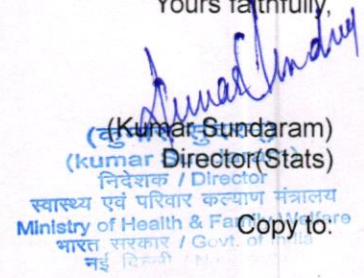 Yours faithfully,
(Kumar Sundaram)
(kumar
Director(Stats)
निदेशक / Director
स्वास्थ्य एवं परिवार कल्याण मंत्रालय
Ministry of Health & Family Welfare
Copy to:
भारत सरकार / Govt. of India
नई दिल्ली